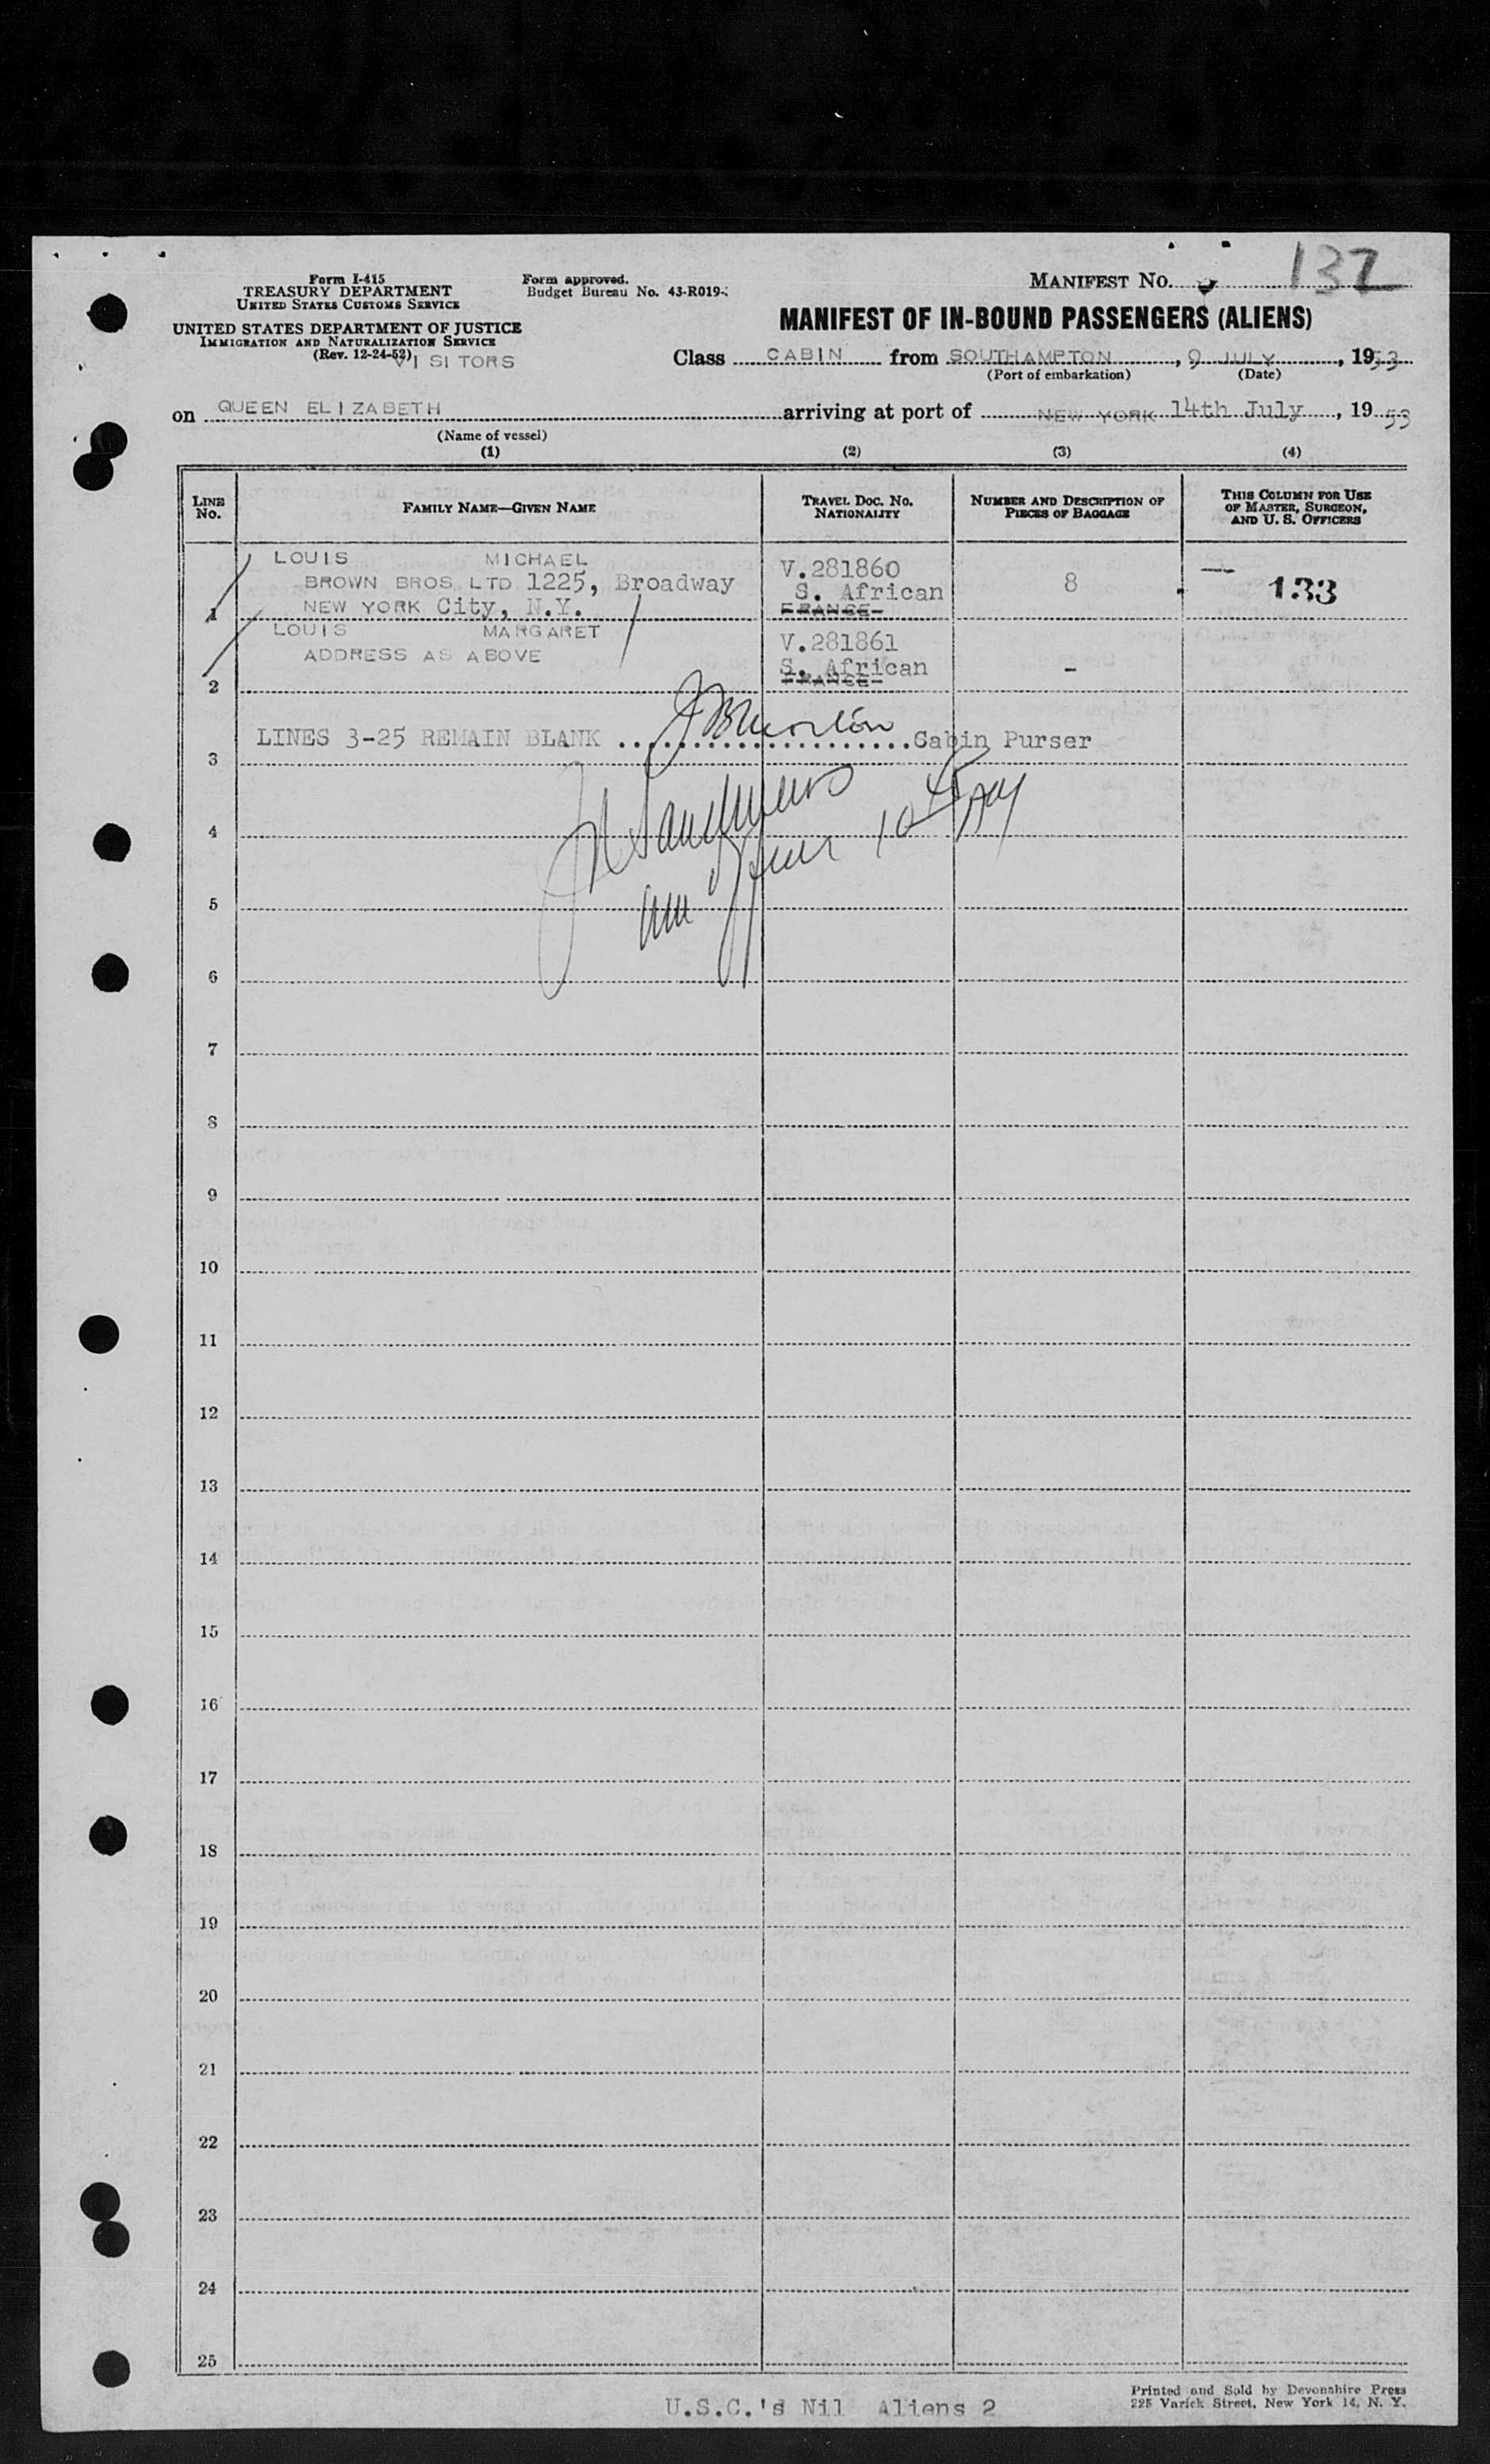 Form I-415
TREASURY DEPARTMENT
UNITED STATES CUSTOMS SERVICE
UNITED STATES DEPARTMENT OF JUSTICE
IMMIGRATION AND NATURALIZATION SERVICE
(Rev. 12-24-52)
VISITORS
Form approved.
Budget Bureau No. 43-R019-
MANIFEST NO. 132
MANIFEST OF IN-BOUND PASSENGERS (ALIENS)
Class CABIN from SOUTHAMPTON, 9 JULY, 1953
(Port of embarkation) (Date)
on QUEEN ELIZABETH arriving at port of NEW YORK 14th July, 1953
(Name of vessel)
(1) (2) (3) (4)
LINE NO. FAMILY NAME—GIVEN NAME TRAVEL DOC. NO. NATIONALITY NUMBER AND DESCRIPTION OF PIECES OF BAGGAGE THIS COLUMN FOR USE OF MASTER, SURGEON, AND U. S. OFFICERS
LOUIS MICHAEL V.281860
BROWN BROS LTD 1225, Broadway S. African 8 — 133
1 NEW YORK City, N.Y. FRANCE
LOUIS MARGARET V.281861
ADDRESS AS ABOVE S. African -
2 FRANCE
LINES 3-25 REMAIN BLANK ........ Cabin Purser
3
4
5
6
7
8
9
10
11
12
13
14
15
16
17
18
19
20
21
22
23
24
25
U.S.C.'s Nil Aliens 2
Printed and Sold by Devonshire Press
225 Varick Street, New York 14, N. Y.